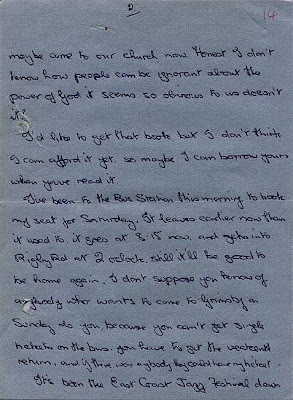 2
14
maybe come to our church now. Honest I don't
know how people can be ignorant about the
power of God it seems so obvious to us doesn't
it?
I'd like to get that book but I don't think
I can afford it yet, so maybe I can borrow yours
when you've read it
I've been to the Bus Station this morning to book
my seat for Saturday. It leaves earlier now than
it used to, it goes at 8.15 now, and gets into
at 2 o'clock, still it'll be good to
be home again. I don't suppose you know of
anybody who wants to come to Grimsby on
Sunday do you because you can't get single
tickets on the bus, you have to get the weekend
return, and if there was anybody they could have my ticket.
It's been the East Coast Jazz Festival down